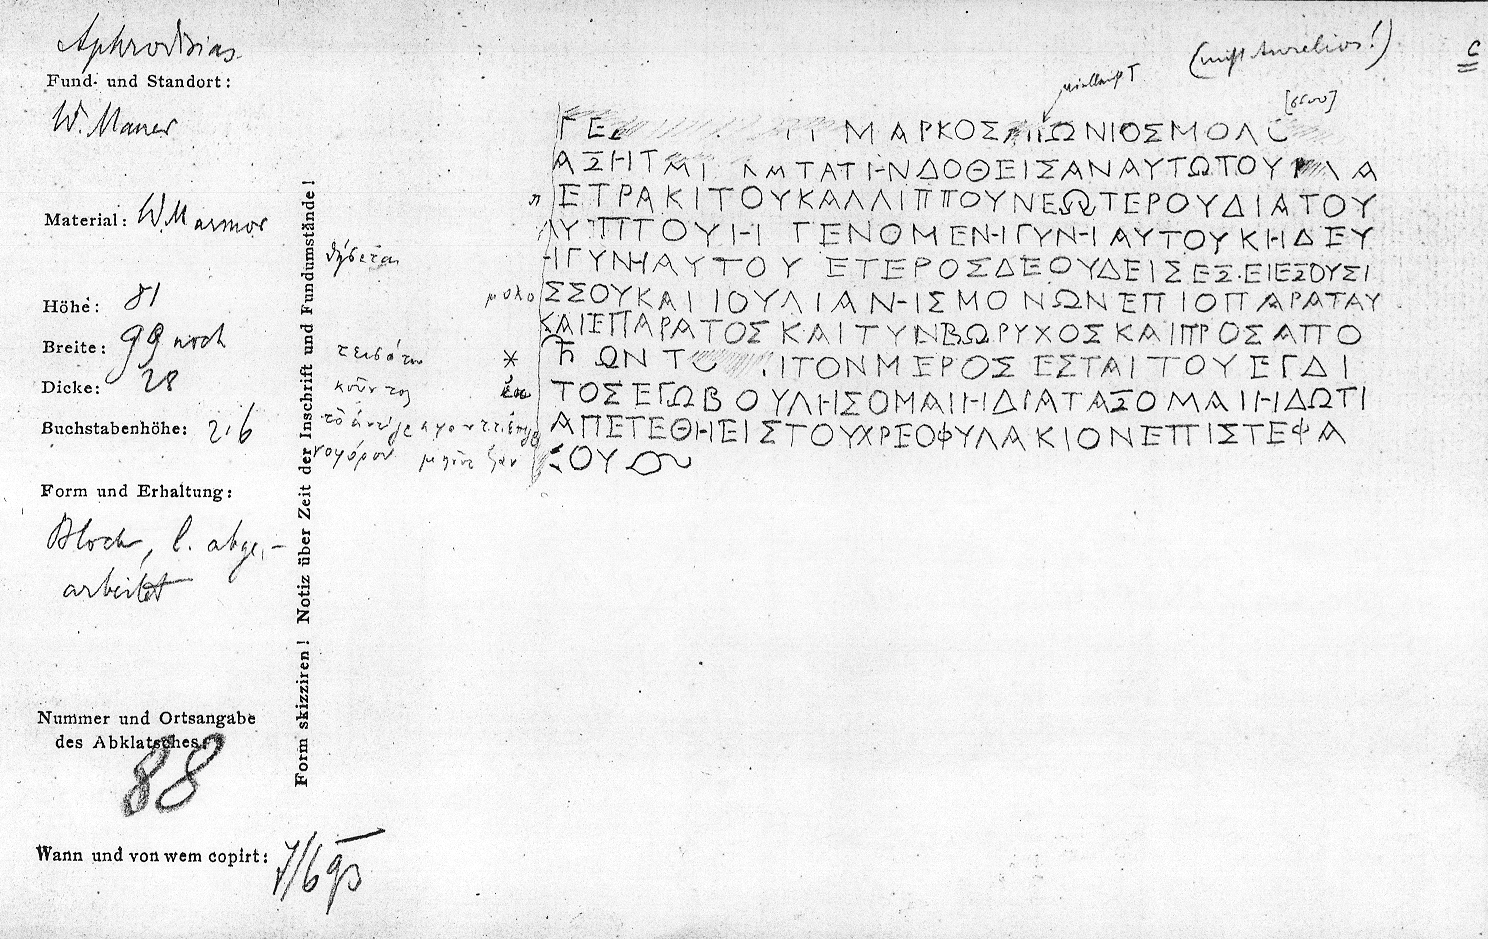 Aphrodisias
Fund- und Standort:
W. Mauer
Material: W. Marmor
Höhe: 81
Breite: 99 noch
Dicke: 28
Buchstabenhöhe: 2,6
Form und Erhaltung:
Block, l. abge-
arbeitet
Nummer und Ortsangabe
des Abklatsches:
88
Wann und von wem copirt: 7/6 93
Form skizziren! Notiz über Zeit der Inschrift und Fundumstände!
(nicht Aurelios!)
C
vielleicht Τ
[σσου]
ΓΕ ΜΑΡΚΟΣ ΩΝΙΟΣΜΟΛ
ΑΞΗΤ ΤΑΤΗΝΔΟΘΕΙΣΑΝΑΥΤΩΤΟΥ ΛΑ
π ΕΤΡΑΚΙΤΟΥΚΑΛΛΙΠΠΟΥΝΕΩΤΕΡΟΥΔΙΑΤΟΥ
ΛΥΠΠΟΥΗ ΓΕΝΟΜΕΝΗΓΥΝΗΑΥΤΟΥΚΗΔΕΥ
θήσεται ΗΓΥΝΗΑΥΤΟΥ ΕΤΕΡΟΣΔΕΟΥΔΕΙΣΕΞΕΙΕΞΟΥΣΙ
μολο ΣΣΟΥΚΑΙΙΟΥΛΙΑΝΗΣΜΟΝΩΝΕΠΙΟΠΑΡΑΤΑΥ
ΚΑΙΕΠΑΡΑΤΟΣΚΑΙΤΥΝΒΩΡΥΧΟΣΚΑΙΠΡΟΣΑΠΟ
τεισάτω ΩΝΤ ΙΤΟΝΜΕΡΟΣΕΣΤΑΙΤΟΥΕΓΔΙ
κοῦντος ΤΟΣΕΓΩΒΟΥΛΗΣΟΜΑΙΗΔΙΑΤΑΞΟΜΑΙΗΔΩΤΙ
ΑΠΕΤΕΘΗΕΙΣΤΟΥΧΡΕΟΦΥΛΑΚΙΟΝΕΠΙΣΤΕΦΑ
ΟΥ